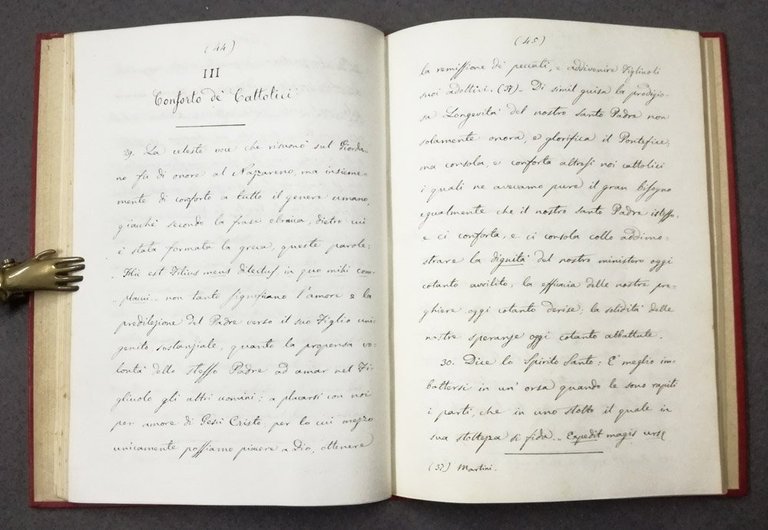 (44)
III
Conforto de' Cattolici
29. La celeste voce che risuonò sul Giorda
no fu di onore al Nazareno, ma insieme-
mente di conforto a tutto il genere umano,
giacchè secondo la frase ebraica, dietro cui
è stata formata la greca, queste parole:
Hic est Filius meus dilectus in quo mihi com-
placui, non tanto significano l'amore e la
predilezione del Padre verso il suo Figlio uni-
genito sostanziale, quanto la propensa vo-
lontà dello stesso Padre ad amar nel Fi-
gliuolo gli altri uomini; a placarsi con noi
per amore di Gesù Cristo per lo cui mezzo
unicamente possiamo piacere a Dio, ottenere
(45)
la remissione de' peccati, e addivenire figliuoli
suoi adottivi. (37)_ Di simil guisa la prodigio-
sa Longevità del nostro Santo Padre non
solamente onora, e glorifica il Pontefice,
ma consola e conforta altresì noi cattolici
i quali ne avevamo pure il gran bisogno
egualmente che il nostro santo Padre istesso.
e ci conforta, e ci consola collo addimo-
strare la dignità del nostro ministero oggi
cotanto avvilito, la efficacia delle nostre pre-
ghiere oggi cotanto derise; la solidità delle
nostre speranze oggi cotanto abbattute.
30. Dice lo Spirito Santo: E' meglio im-
battersi in un' orsa quando le sono rapiti
i parti, che in uno stolto il quale in
sua stoltezza si fida._ Expedit magis ursæ
(37) Martini.